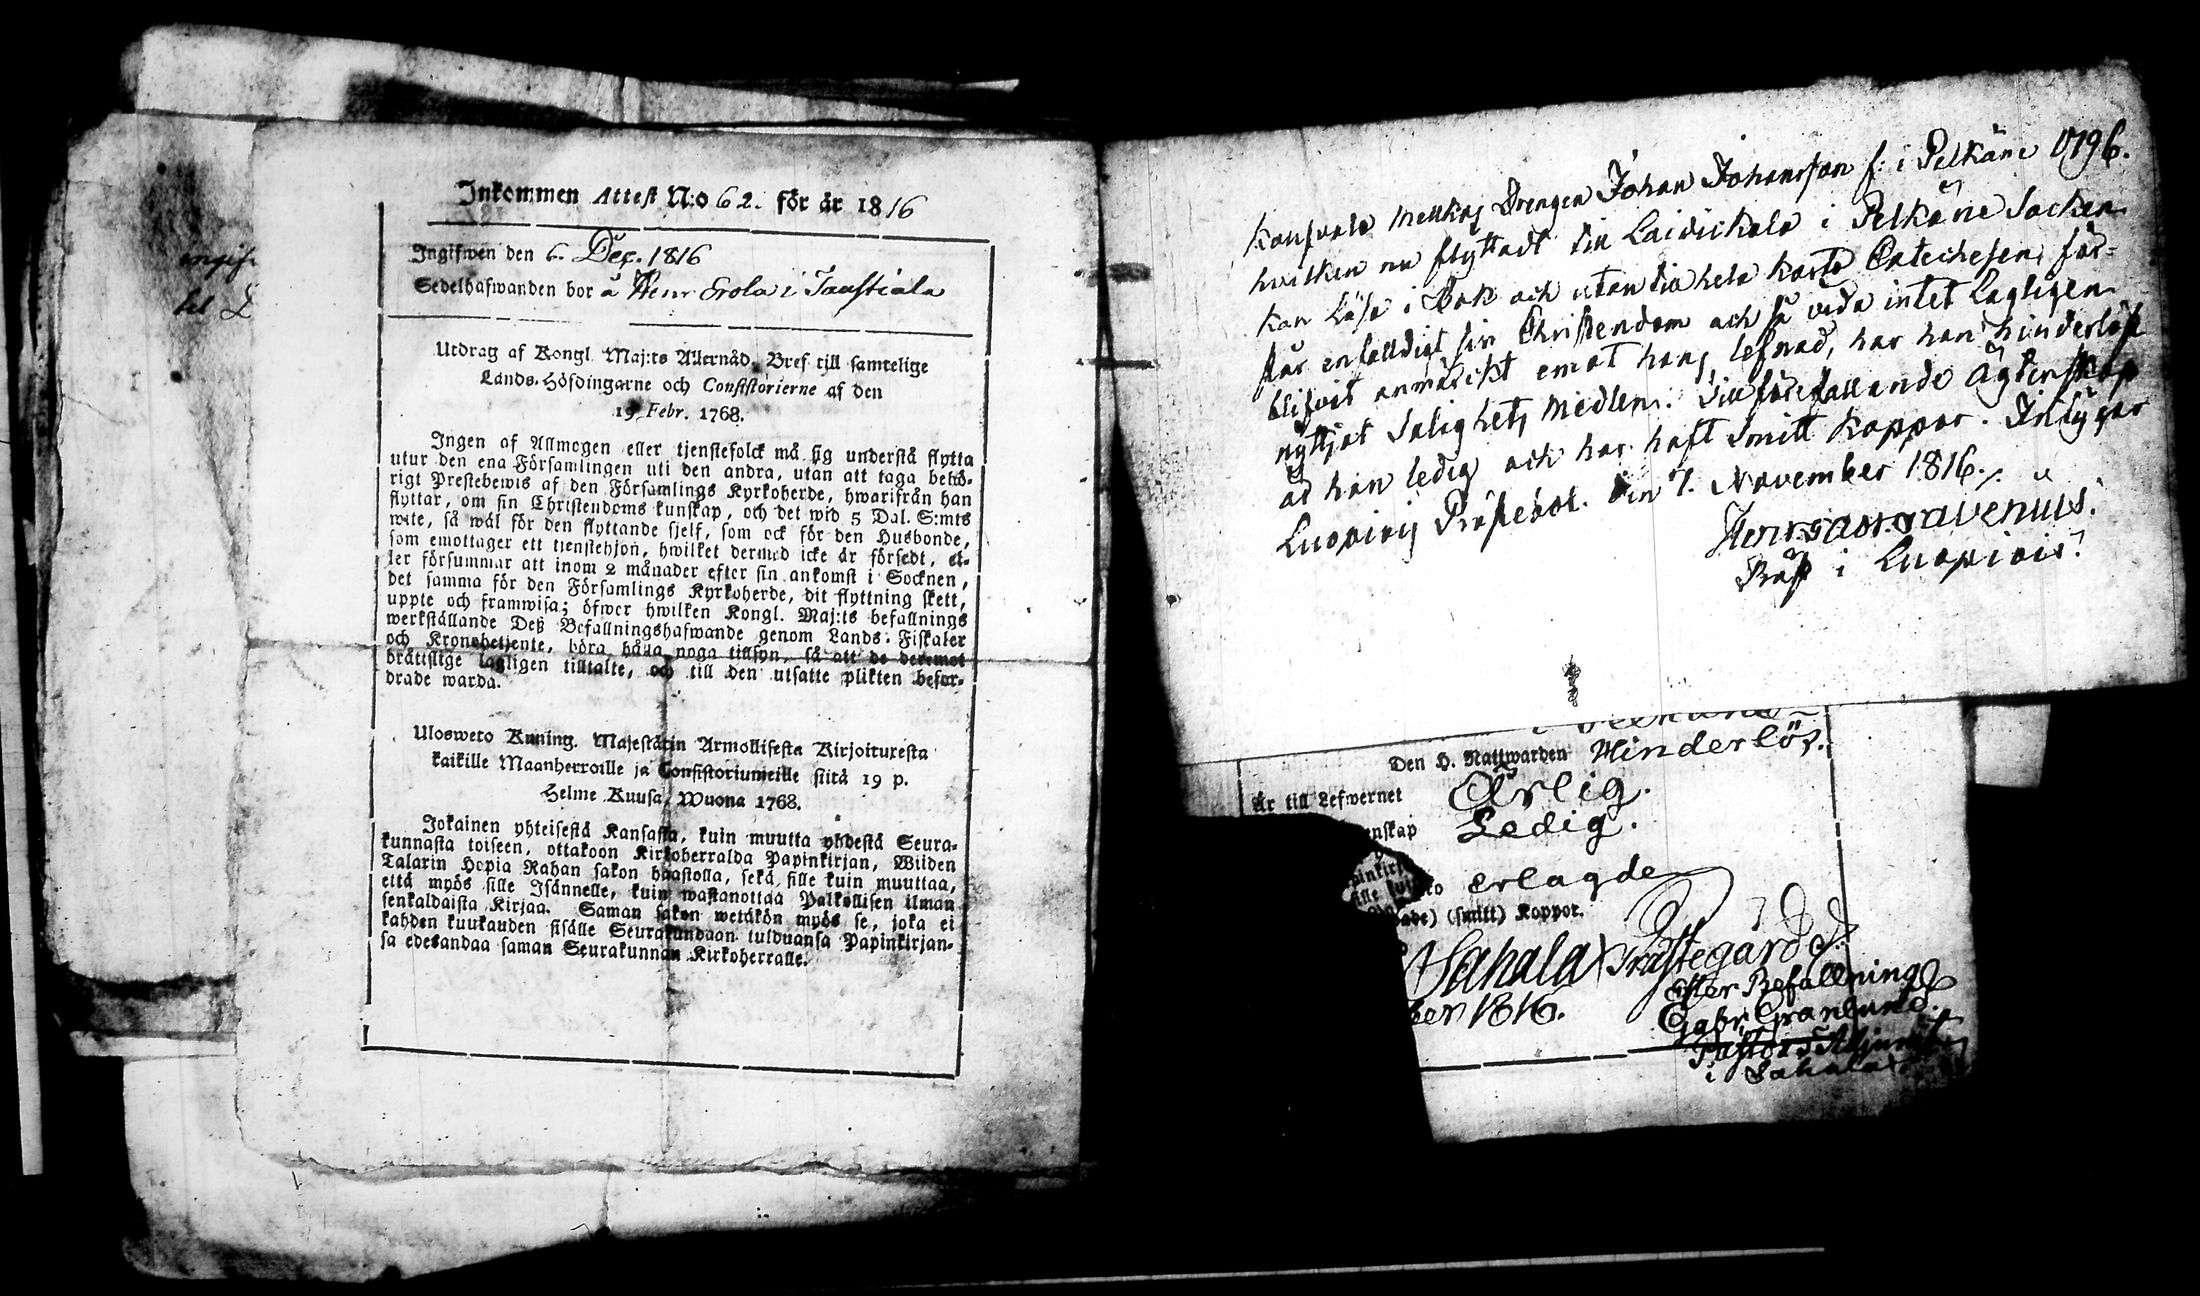 Inkommen Attest N:o 62. för år 1816
Ingifwen den 6. Dec. 1816
Sedelhafwanden bor å Henr Erola i Taustiala
Utdrag af Kongl. Maj:ts Allernåd. Bref till samtelige
Lands-Höfdingarne och Consistorierne af den
19 Febr. 1768.
Ingen af Allmogen eller tjenstefolck må sig understå flytta
utur den ena Församlingen uti den andra, utan att taga behö-
rigt Prestebewis af den Församlings Kyrkoherde, hwarifrån han
flyttar, om sin Christendoms kunskap, och det wid 5 Dal. S:mts
wite, så wäl för den flyttande sjelf, som ock för den Husbonde,
som emottager ett tjenstehjon, hwilket dermed icke är försedt, el-
ler försummar att inom 2 månader efter sin ankomst i Socknen,
det samma för den Församlings Kyrkoherde, dit flyttning skett,
uppte och framwisa; öfwer hwilken Kongl. Maj:ts befallnings
werkställande Deß Befallningshafwande genom Lands-Fiskaler
och Kronobetjente, böra hålla noga tillsyn, så att de deremot
bråttslige lagligen tilltalte, och till den utsatte plikten befor-
drade warda.
Ulosweto Kuning. Majestätin Armollisesta Kirjoituxesta
kaikille Maanherroille ja Consistoriumeille siitä 19 p.
Helme Kuusa, Wuona 1768.
Jokainen yhteisestä Kansasta, kuin muutta yhdestä Seura-
kunnasta toiseen, ottakoon Kirkoherralda Papinkirjan, Wiiden
Talarin Hopia Rahan sakon haastolla, sekä sille kuin muuttaa,
että myös sille Isännelle, kuin wastanottaa Palkollisen ilman
senkaldaista Kirjaa. Saman sakon wetäkön myös se, joka ei
kahden kuukauden sisälle Seurakundaan tulduansa Papinkirjan-
sa edesandaa saman Seurakunnan Kirkoherralle.
Drengen Johan Johansson f: i Pelkäne 1796.
hvilken nu flyttadt till Laidickala i Pelkäne Socken
kan läsa i Bok och utan till hela korta Catechesen, för-
står enfalldigt sin Christendom och så vida intet Lagligen
blifvit anmärckt emot hans lefnad, har han hinderlöst
nyttjat Salighets Medlen. Till förefallande Ägtenskap
är han ledig och har haft Smitt Koppor. Intygar
Luopiois Prästebol. den 7. November 1816.
Präst i Luopiois.
Den H. Nattwarden Hinderlös.
Är till Lefwernet Ärlig.
enskap Ledig.
erlagde
(smitt) Koppor.
Sahalax Prästegård d.
ber 1816.
Efter Befallning
Gabr. Granlund.
Pastors Adjunct
i Sahalax.